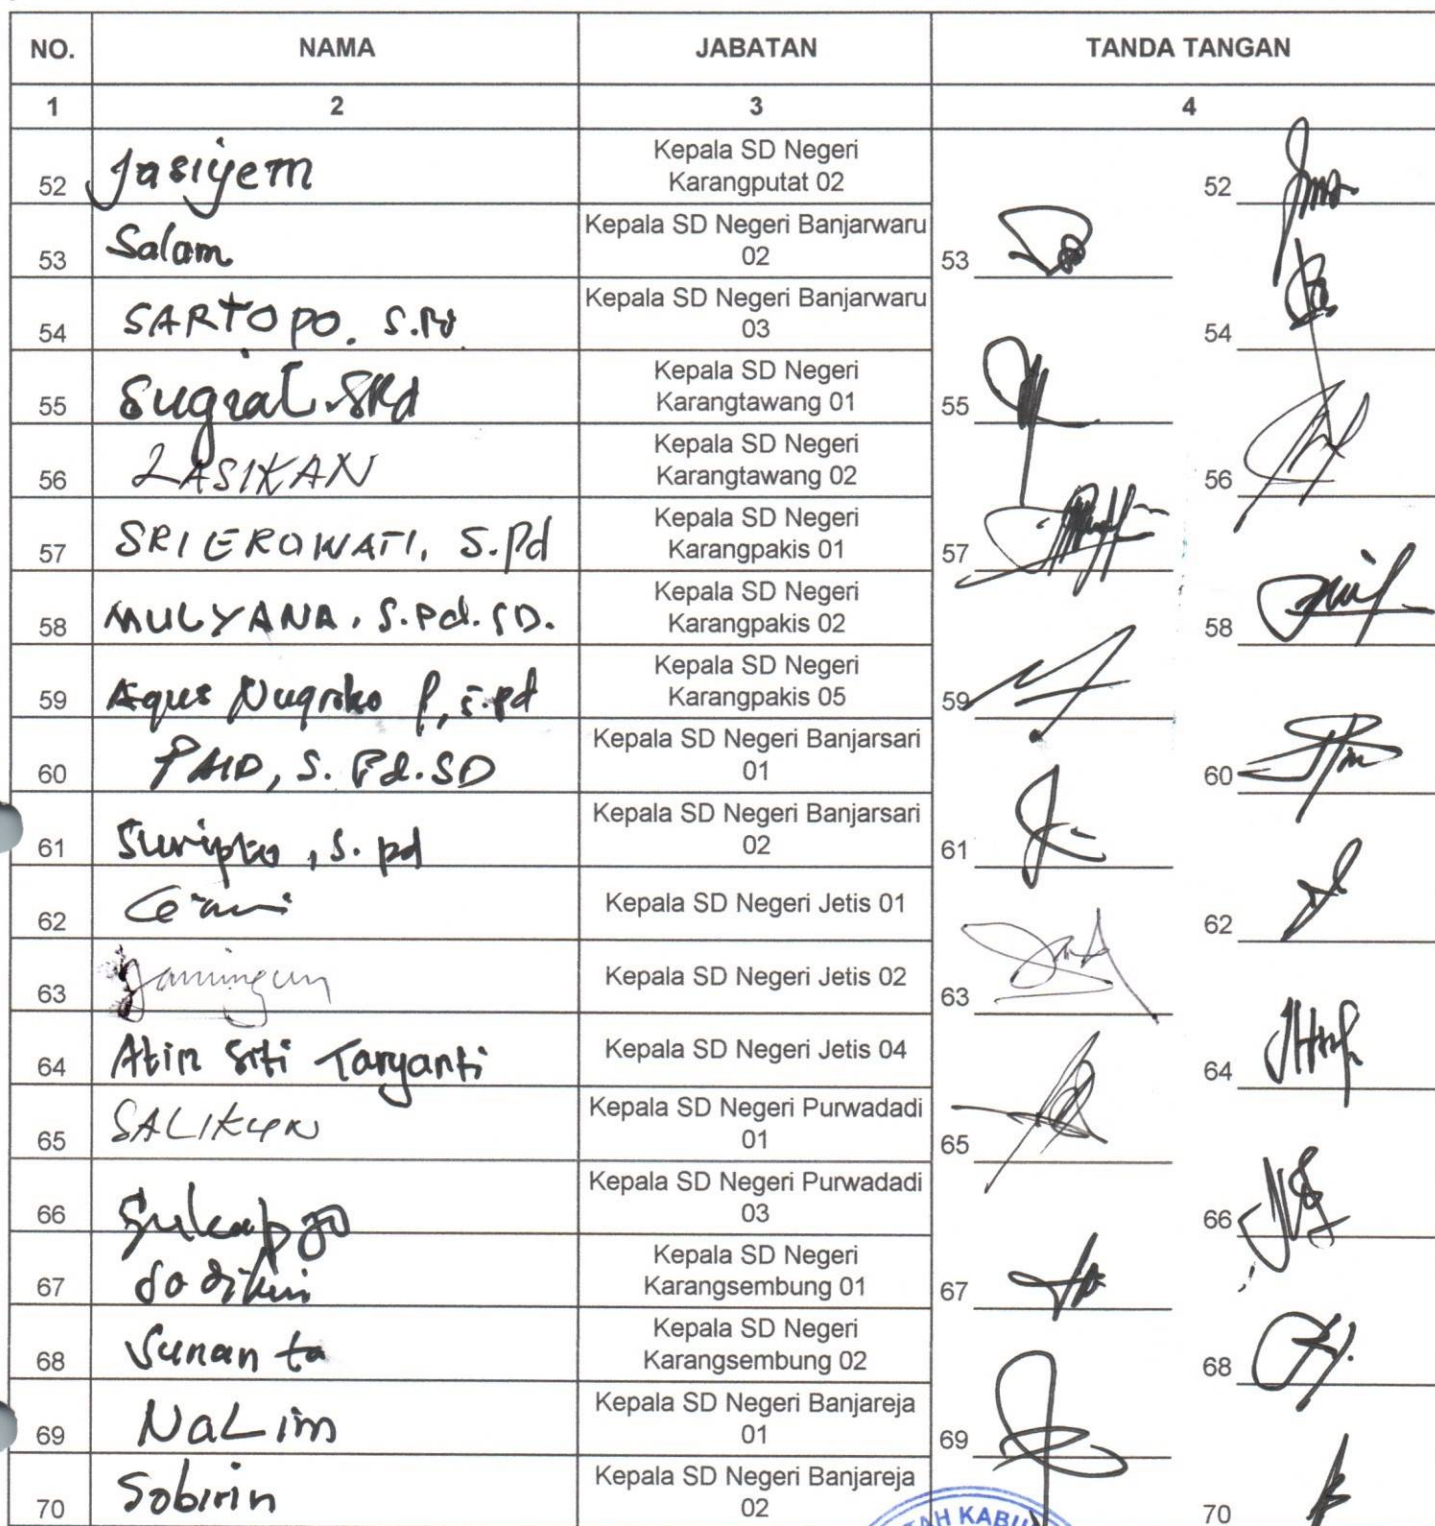 NO. NAMA JABATAN TANDA TANGAN
1 2 3 4
52 Jasiyem Kepala SD Negeri Karangputat 02 52
53 Salam Kepala SD Negeri Banjarwaru 02 53
54 SARTOPO. S.Pd Kepala SD Negeri Banjarwaru 03 54
55 Sugiat. SPd Kepala SD Negeri Karangtawang 01 55
56 LASIKAN Kepala SD Negeri Karangtawang 02 56
57 SRI EROWATI, S.Pd Kepala SD Negeri Karangpakis 01 57
58 MULYANA, S.Pd.SD. Kepala SD Negeri Karangpakis 02 58
59 Agus Nugroho P, S.Pd Kepala SD Negeri Karangpakis 05 59
60 PAID, S.Pd.SD Kepala SD Negeri Banjarsari 01 60
61 Suripto, S.pd Kepala SD Negeri Banjarsari 02 61
62 Kepala SD Negeri Jetis 01 62
63 Kepala SD Negeri Jetis 02 63
64 Atin Siti Taryanti Kepala SD Negeri Jetis 04 64
65 SALIKUN Kepala SD Negeri Purwadadi 01 65
66 Kepala SD Negeri Purwadadi 03 66
67 Sodikin Kepala SD Negeri Karangsembung 01 67
68 Sunanta Kepala SD Negeri Karangsembung 02 68
69 NaLim Kepala SD Negeri Banjareja 01 69
70 Sobirin Kepala SD Negeri Banjareja 02 70